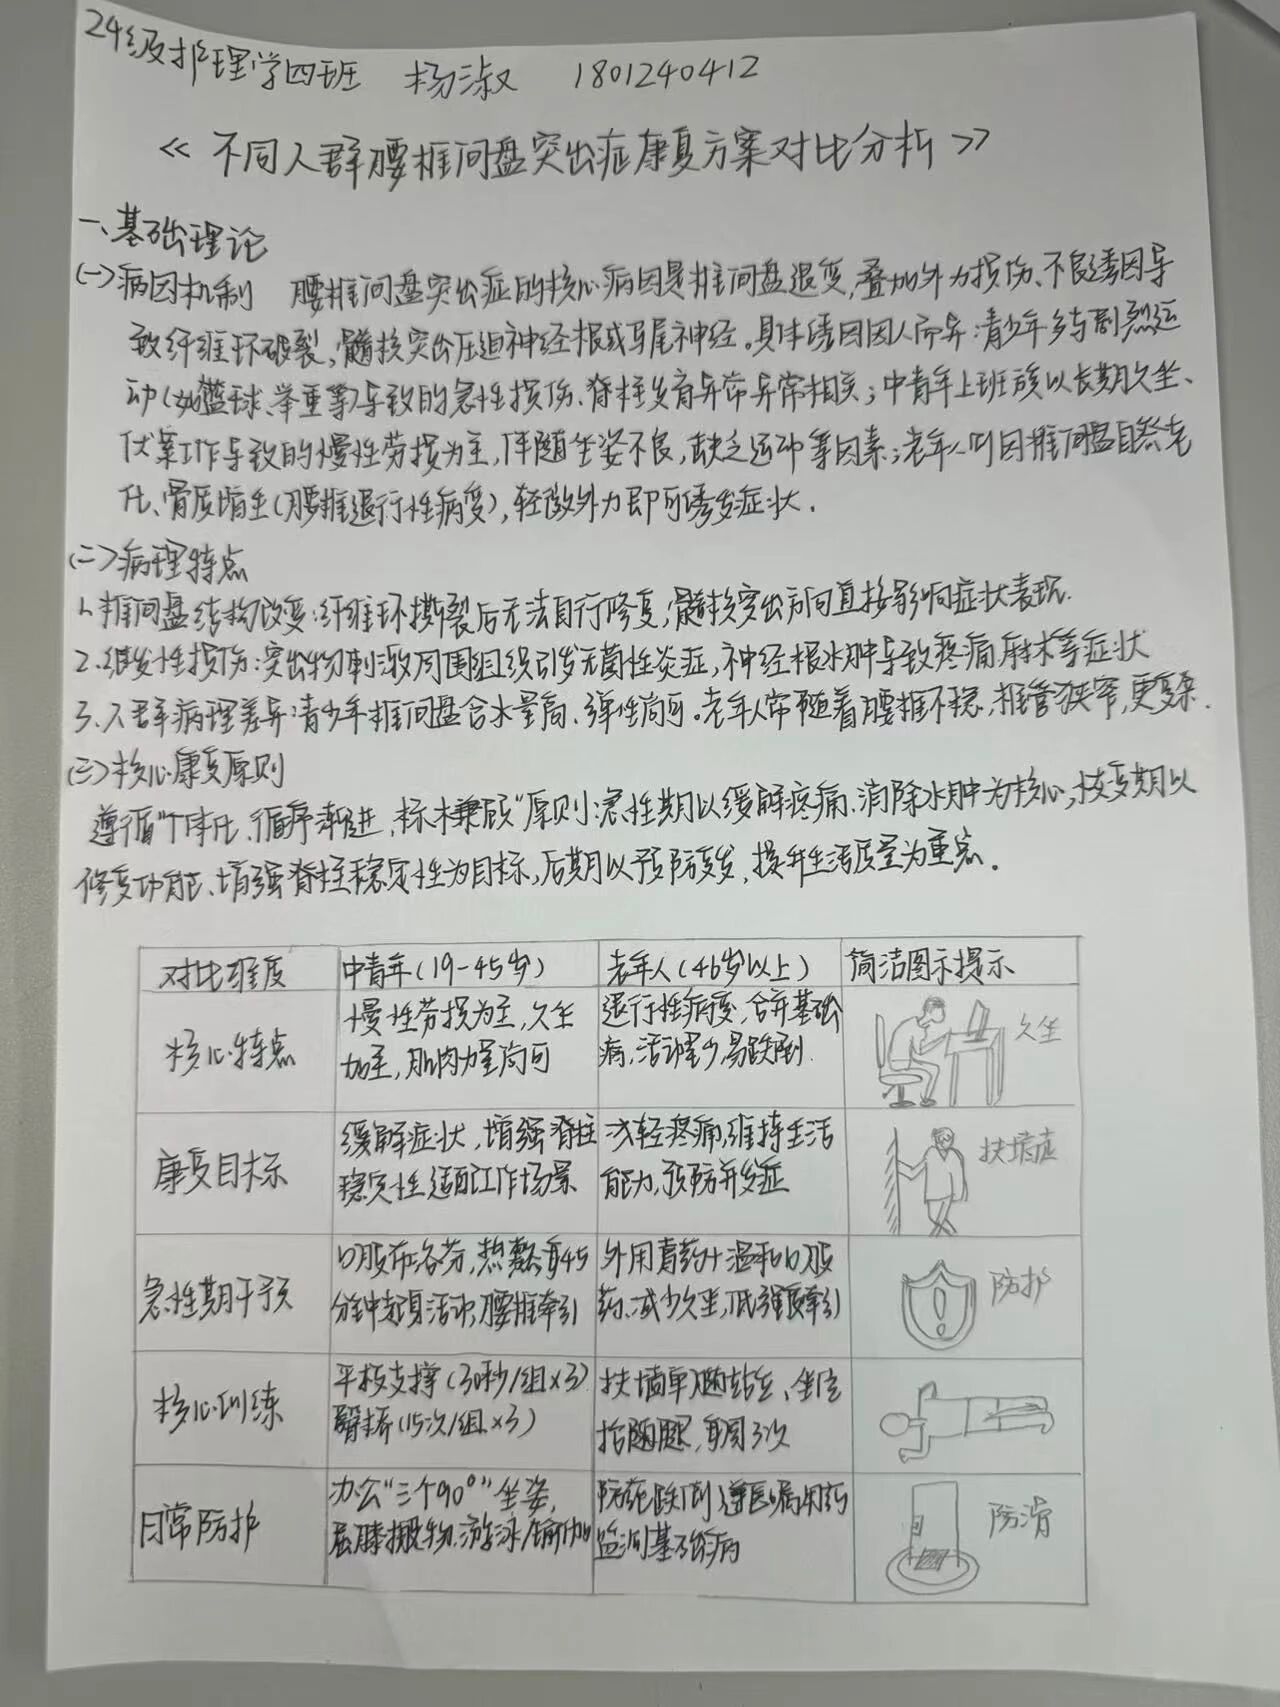 24级护理学四班 杨淑 1801240412
《不同人群腰椎间盘突出症康复方案对比分析》
一、基础理论
(一)病因机制 腰椎间盘突出症的核心病因是椎间盘退变,叠加外力损伤、不良诱因导
致纤维环破裂,髓核突出压迫神经根或马尾神经。具体诱因因人而异:青少年多与剧烈运
动(如篮球、举重等)导致的急性损伤、脊柱发育异常异常相关;中青年上班族以长期久坐、
伏案工作导致的慢性劳损为主,伴随坐姿不良,缺乏运动等因素;老年人则因椎间盘自然老
化、骨质增生(腰椎退行性病变),轻微外力即可诱发症状.
(二)病理特点
1.椎间盘结构改变:纤维环撕裂后无法自行修复,髓核突出方向直接影响症状表现.
2.继发性损伤:突出物刺激周围组织引发无菌性炎症,神经根水肿导致疼痛、麻木等症状
3.人群病理差异:青少年椎间盘含水量高、弹性尚可。老年人常随着腰椎不稳,椎管狭窄,更复杂.
(三)核心康复原则
遵循"个体化、循序渐进、标本兼顾"原则:急性期以缓解疼痛、消除水肿为核心,恢复期以
修复功能、增强脊柱稳定性为目标,后期以预防复发,提升生活质量为重点.
对比维度 中青年(19-45岁) 老年人(46岁以上) 简洁图示提示
核心特点 慢性劳损为主,久坐 退行性病变,合并基础 久坐
加重,肌肉力量尚可 病,活动量少,易跌倒.
康复目标 缓解症状,增强脊柱 减轻疼痛,维持生活 扶墙走
稳定性,适配工作场景 能力,预防并发症
急性期干预 口服布洛芬,热敷,每45 外用膏药+温和口服 防护
分钟起身活动,腰椎牵引 药,减少久坐,低强度牵引
核心训练 平板支撑(30秒/组×3) 扶墙单腿站立、坐位
臀桥(15次/组×3) 抬腿,每周3次
日常防护 办公"三个90°"坐姿, 跌倒,遵医嘱用药 防滑
屈膝搬物,游泳/瑜伽 监测基础病